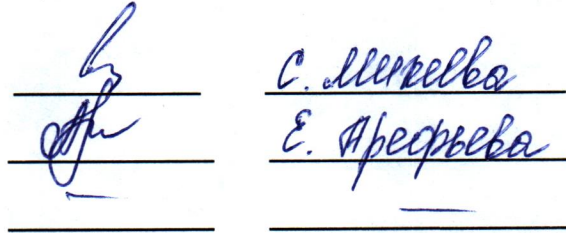 С. Михеева
Е. Арефьева
— —